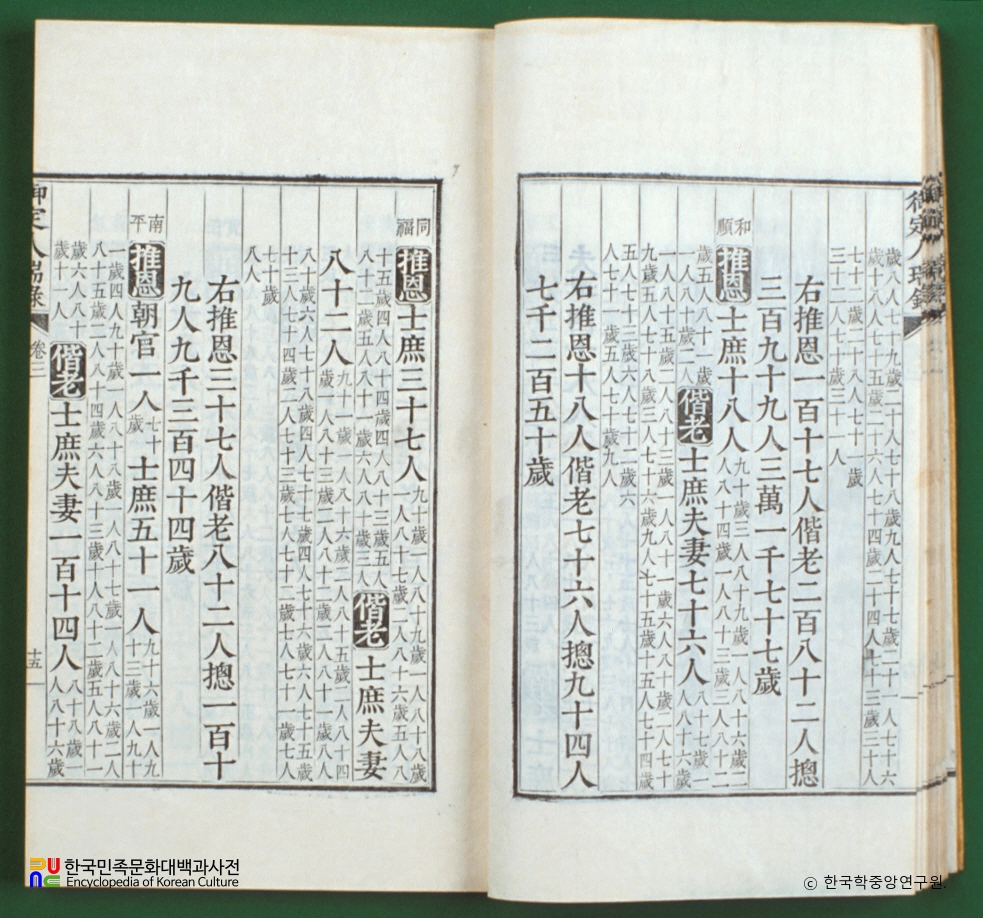 御定人瑞錄
歲八人七十九歲二十一人七十八歲九人七十七歲二十一人七十六
歲十八人七十五歲二十六人七十四歲二十四人七十三歲三十人
右推恩一百十七人偕老二百八十二人摠
三百九十九人三萬一千七十七歲
和順 推恩 士庶十八人 九十歲三人八十九歲一人八十六歲二
人八十四歲一人八十三歲三人八十二
歲五人八十一歲
一人八十歲二人 偕老 士庶夫妻七十六人 八十七歲一
人八十六歲
一人八十五歲二人八十三歲一人八十二歲一人八十一歲六人八十歲二人七十
九歲五人七十八歲三人七十七歲六人七十六歲九人七十五歲十五人七十四歲
五人七十三歲六人七十二歲六
人七十一歲五人七十歲九人
右推恩十八人偕老七十六人摠九十四人
七千二百五十歲
同福 推恩 士庶三十七人 九十歲一人八十九歲一人八十八歲
一人八十七歲二人八十六歲五人八
十五歲四人八十四歲四人八十三歲五人
八十二歲五人八十一歲六人八十歲三人 偕老 士庶夫妻
八十二人 九十一歲一人八十六歲二人八十五歲二人八十四
歲一人八十三歲二人八十二歲二人八十一歲八人
八十歲六人七十八歲四人七十七歲四人七十六歲八人七十五歲
十三人七十四歲二人七十三歲七人七十二歲八人七十一歲七人
七十歲
八人
右推恩三十七人偕老八十二人摠一百十
九人九千三百四十四歲
南平 推恩 朝官一人 七十
歲 士庶五十一人 九十六歲一人九
十三歲一人九十
一歲四人九十歲一人八十八歲一人八十七歲一人八十六歲二人
八十五歲二人八十四歲六人八十三歲十人八十二歲五人八十一
歲六人八十
歲十一人 偕老 士庶夫妻一百十四人 八十八歲一
人八十六歲
御定人瑞錄 卷三 十五
한국민족문화대백과사전
Encyclopedia of Korean Culture
© 한국학중앙연구원.